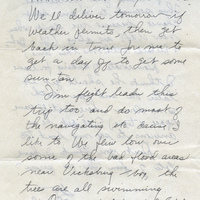 We'll deliver tomorrow if
weather permits, then get
back in time for me to
get a day to get some
sun-tan.
I'm flight leader this
trip too and do most of
the navigating cause I
like to. We flew low over
some of the bad flood areas
near Vicksburg. Boy, the
trees are all swimming